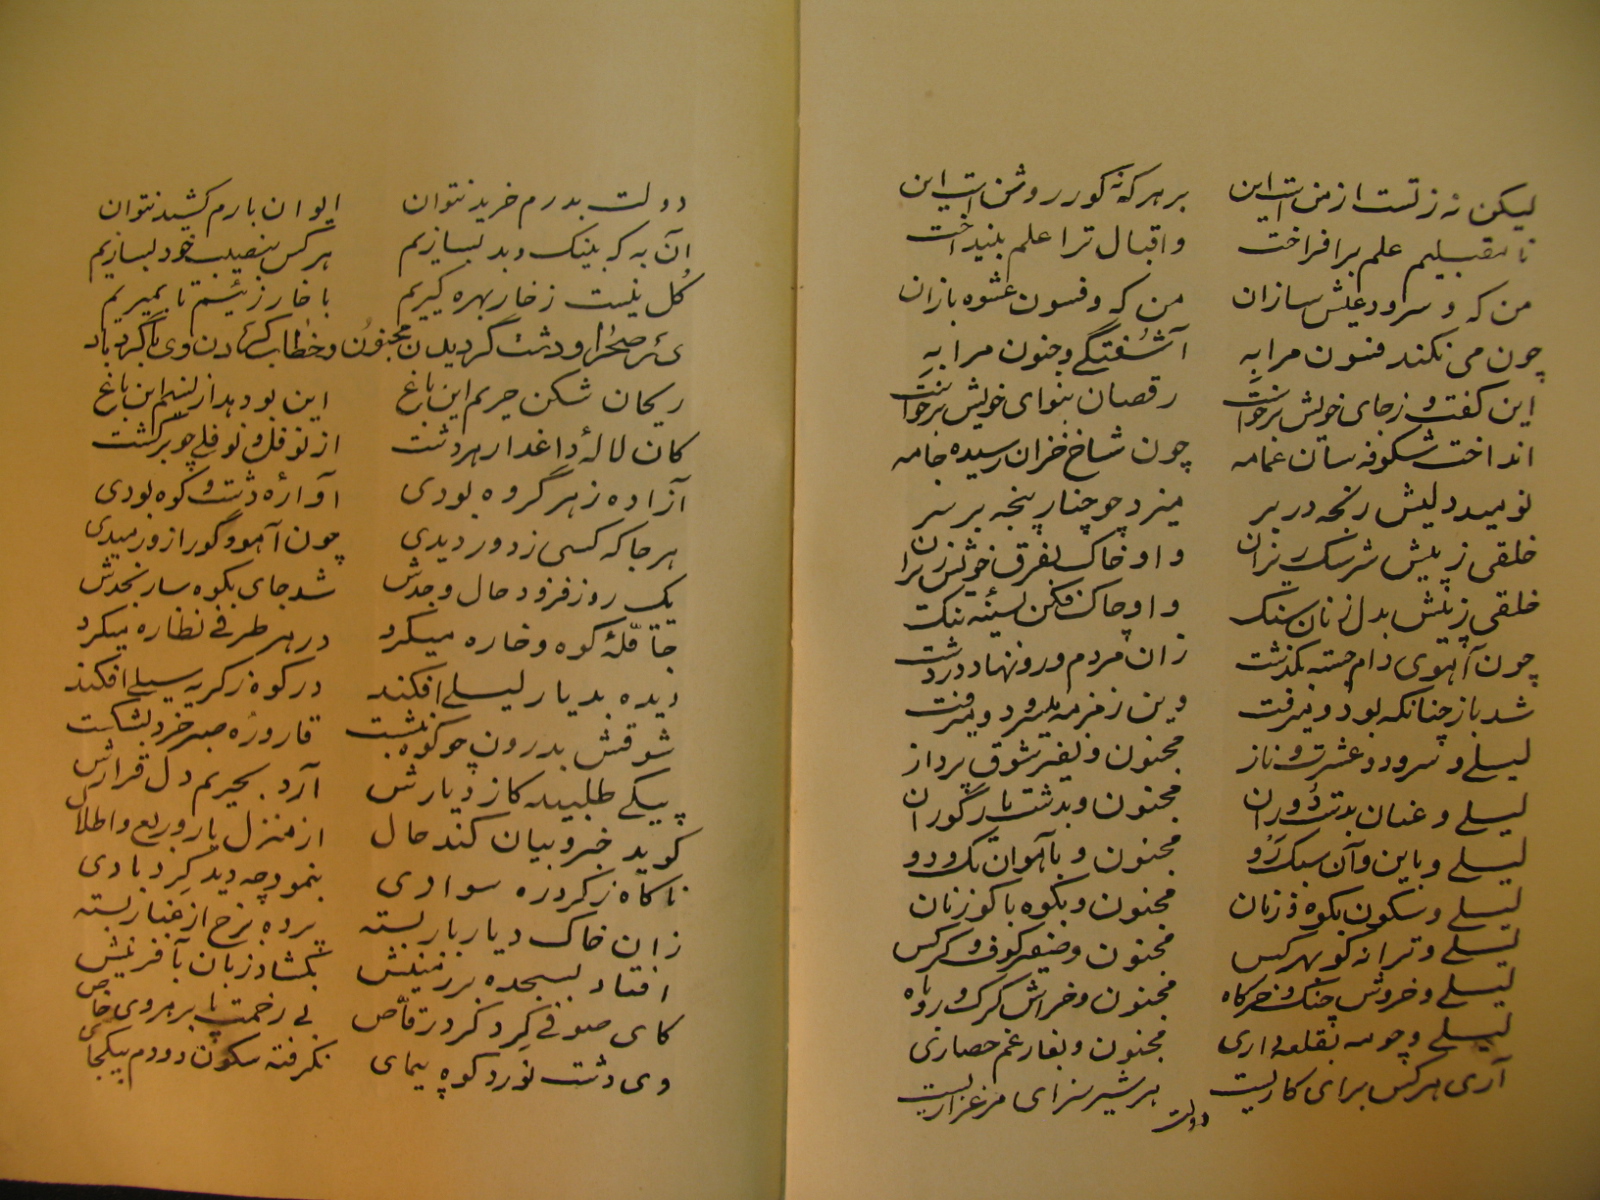 لیکن نه ز تست از من است این بر هر که نه کور روشن است این
نا مقبلیم علم بر افراخت و اقبال ترا علم بینداخت
من که و سرود عیش سازان من که و فسون عشوه بازان
چون می نکند فسون مرا به آشفتگی و جنون مرا به
این گفت و ز جای خویش برخواست رقصان بنوای خویش برخواست
انداخت شکوفه سان عمامه چون شاخ خزان رسیده جامه
نومید دلیش رنجه در بر میزد چو چنار پنجه بر سر
خلقی ز پیش سرشک ریزان و او خاک بفرق خویش
خلقی ز پیش بدل زنان سنگ و او چاک فکن بسینه تنگ
چون آهوی دام جسته بگذشت زان مردم و رو نهاد در دشت
شد باز چنانکه بود و میرفت وین زمزمه میسرود و میرفت
لیلی و سرود و عشرت و ناز مجنون و نفیر شوق پرداز
لیلی و عنان بدست دوران مجنون و بدشت یار گوران
لیلی و باین و آن سبک رو مجنون و با آهوان تک و دو
لیلی و سکون بکوه مجنون و بکوه با گوزنان
لیلی و ترانه گو بهر کس مجنون و صفیر کوف و کرکس
لیلی و خروش چنگ و خرگاه مجنون و خراش گرگ و روباه
لیلی و چو مه بقلعه داری مجنون و بغار غم حصاری
آری هر کس برای کاریست هر شیر سزای مرغزاریست
دولت
دولت بدرم خرید نتوان ایوان بارم کشید نتوان
آن به که بنیک و بد بسازیم هر کس بنصیب خود بسازیم
گل نیست ز خار بهره گیریم با خار زئیم تا بمیریم
صحرا و دشت گردیدن مجنون و خطاب کردن وی با گرد باد
ریحان شکن حریم این باغ این بو دهد از نسیم این باغ
کان لاله داغدار هر دشت از نوفل و نوفلی چو برگشت
آزاده ز هر گروه بودی آواره دشت و کوه بودی
هر جا که کسی ز دور دیدی چون آهو و گور ازو رمیدی
یک روز فزود حال وجدش شد جای بکوهسار نجدش
جا قله کوه و خاره میکرد در هر طرفی نظاره میکرد
دیده بدیار لیلی افکند در کوه ز گریه سیلی افکند
شوقش بدرون چو کوه بنشست قاروره صبر خرد بشکست
پیکی طلبید کاز دیارش آرد بحریم دل قرارش
گوید خبر و بیان کند حال از منزل یار و ربع و اطلال
ناگاه ز گرد ره سوادی بنمود چه دید گرد بادی
زان خاک دیار بار بسته پرده برخ از غبار بسته
افتاد بسجده بر زمینش بگشاد زبان بآفرینش
کای صوفی گرد گرد رقاص بی زحمت پا برهروی خاص
وی دشت نورد کوه پیمای نگرفته سکون دو دم بیکجای